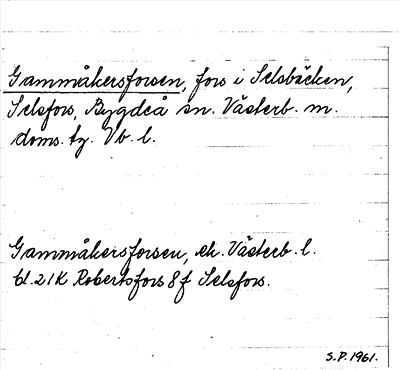 Gammåkersforsen, fors i Selsbäcken,
Selsfors, Bygdeå sn. Västerb. m.
doms. tg. Vb. l.
Gammåkersforsen, ek. Västerb. l.
bl. 21K Robertsfors 8f Selsfors.
S.P. 1961.